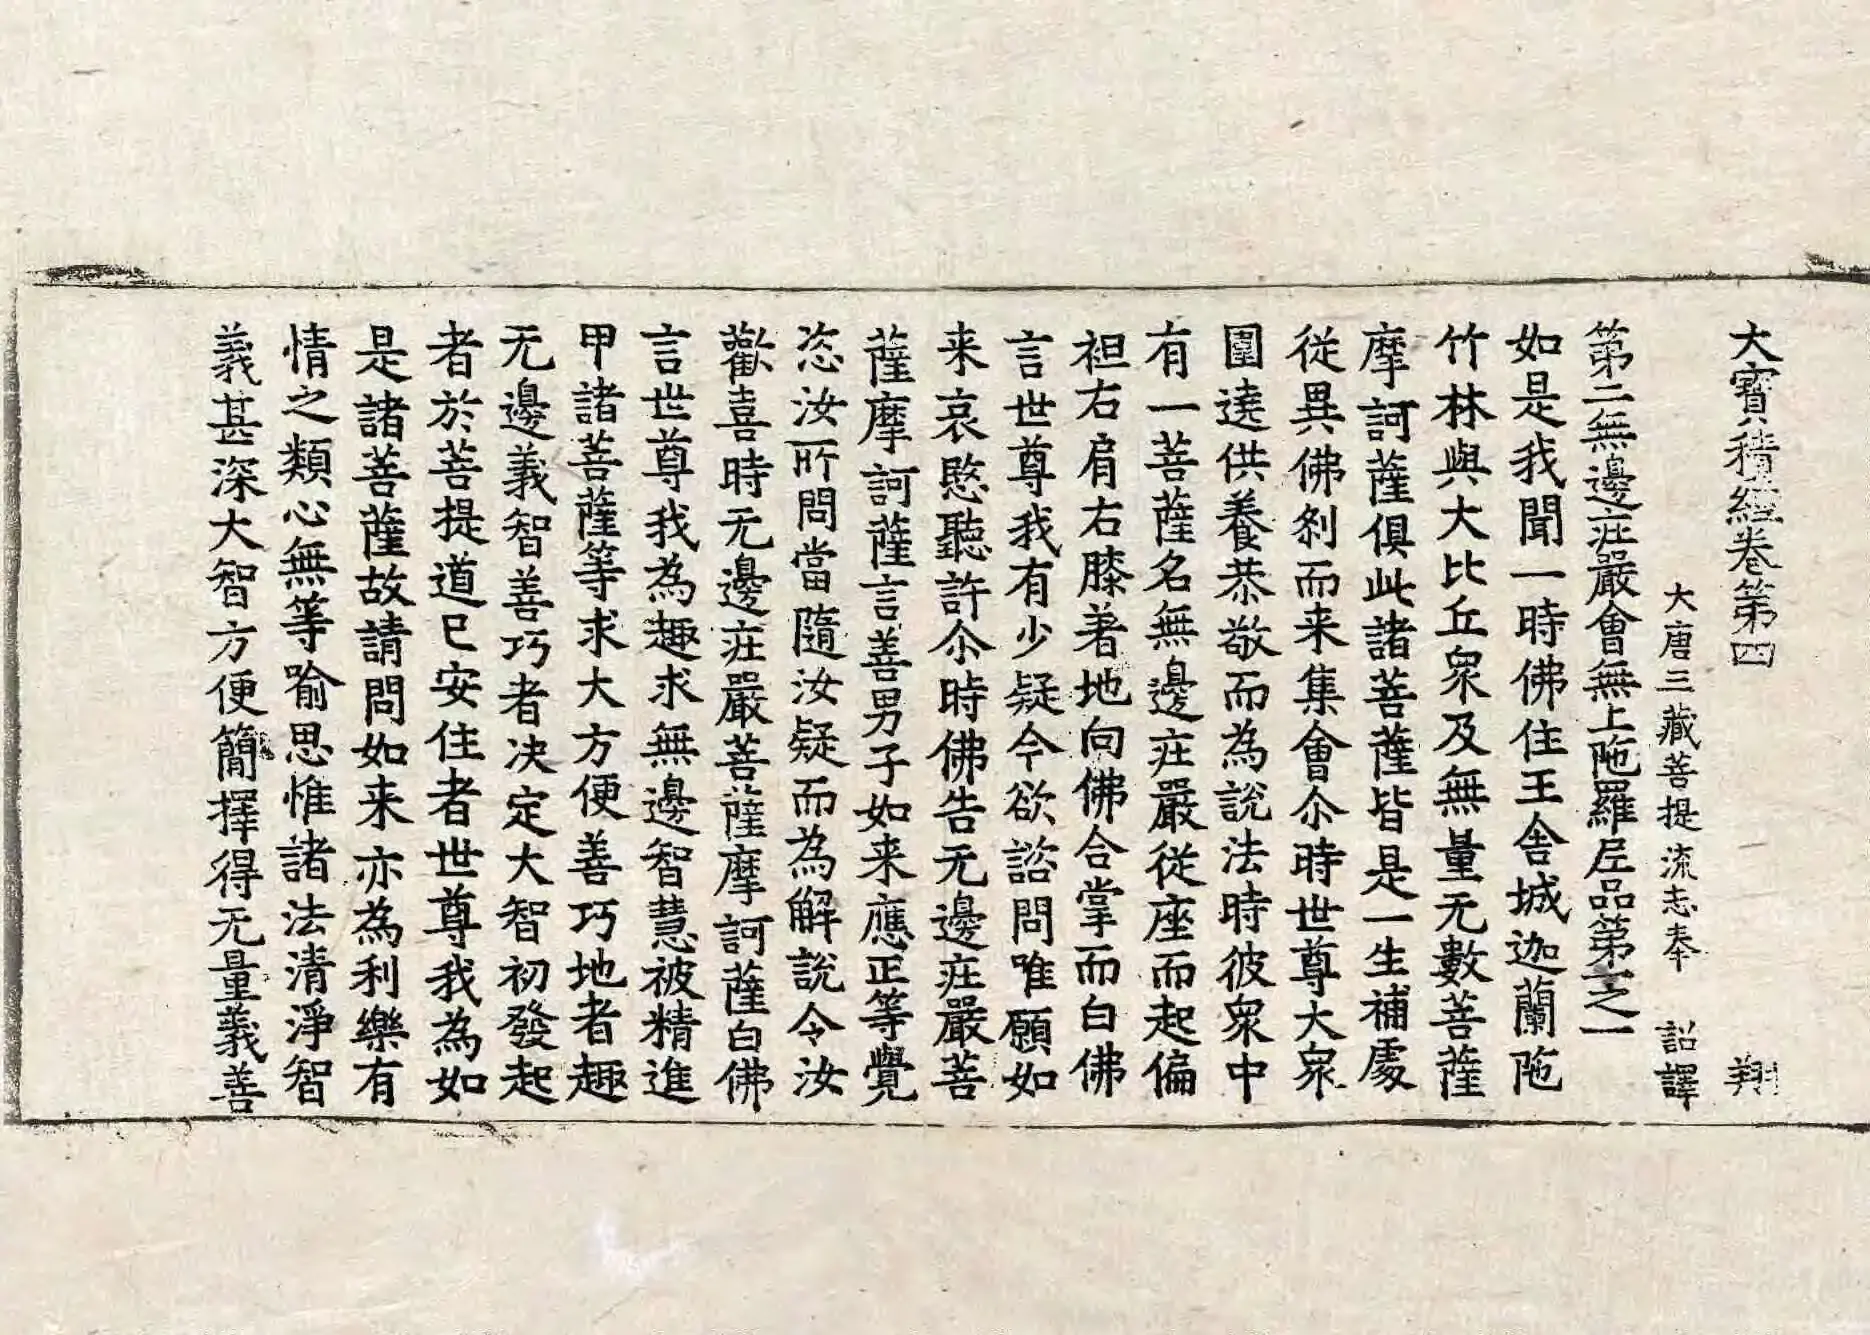 大寶積經卷第四　翔
大唐三藏菩提流志奉　詔譯
第二無邊疘嚴會無上陁羅尼品第一之一
如是我聞一時佛住王舍城迦蘭陁
竹林與大比丘衆及無量无數菩薩
摩訶薩俱此諸菩薩皆是一生補處
從異佛刹而来集會尒時世尊大衆
圍遶供養恭敬而為說法時彼衆中
有一菩薩名無邊疘嚴從座而起偏
袒右肩右膝著地向佛合掌而白佛
言世尊我有少疑今欲諮問唯願如
来哀愍聽許尒時佛告无邊疘嚴菩
薩摩訶薩言善男子如来應正等覺
恣汝所問當隨汝疑而為解說令汝
歡喜時无邊疘嚴菩薩摩訶薩白佛
言世尊我為趣求無邊智慧被精進
甲諸菩薩等求大方便善巧地者趣
无邊義智善巧者决定大智初發起
者於菩提道已安住者世尊我為如
是諸菩薩故請問如来亦為利樂有
情之類心無等喻思惟諸法清淨智
義甚深大智方便簡擇得无量義善